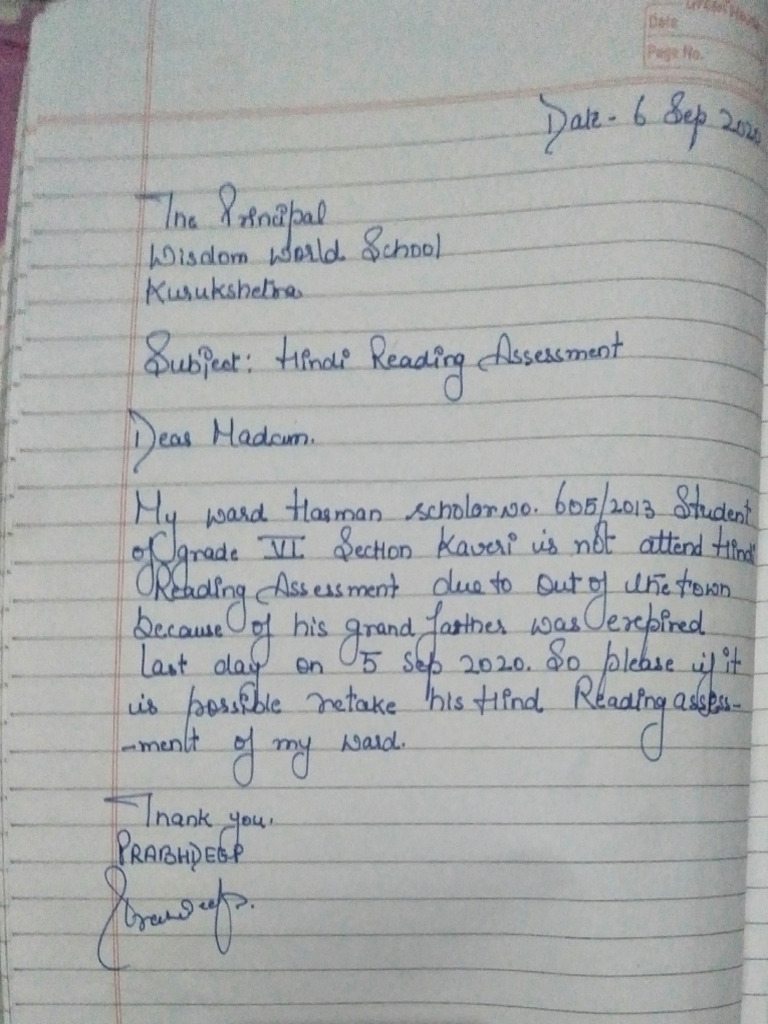 Date
Page No.
Date - 6 Sep 2020
The Principal
Wisdom World School
Kurukshetra
Subject: Hindi Reading Assessment
Dear Madam.
My ward Harman scholar no. 605/2013 Student
of grade VI Section Kaveri is not attend Hindi
Reading Assessment due to out of the town
because of his grand farther was expired
last day on 5 Sep 2020. So please if it
is possible retake his Hind Reading assess-
-ment of my ward.
Thank you.
PRABHDEEP